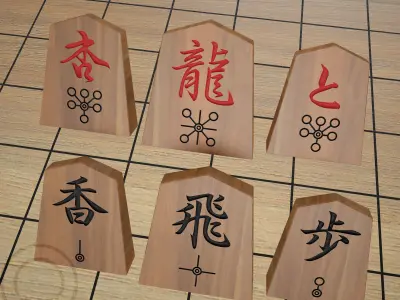 杏 龍 と
香 飛 歩